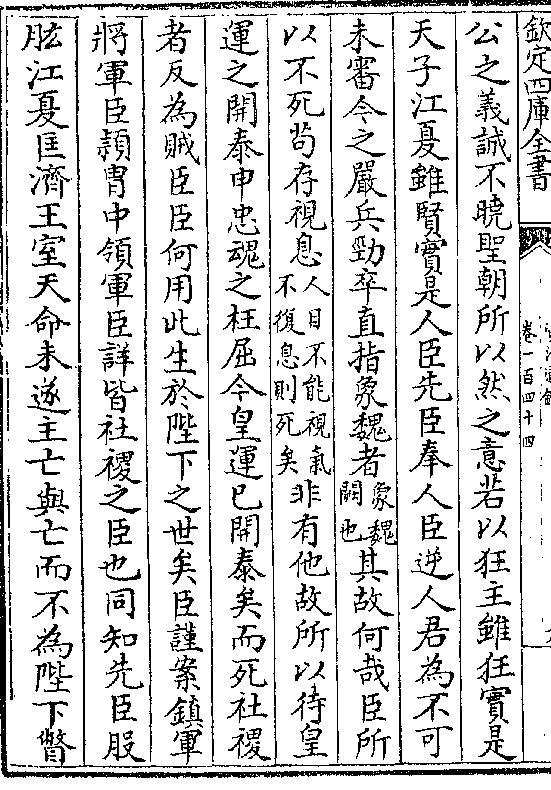 欽定四庫全書
卷一百四十四
公之義誠不曉聖朝所以然之意若以狂主雖狂實是
天子江夏雖賢實是人臣先臣奉人臣逆人君為不可
未審今之嚴兵勁卒直指象魏者象魏闕也其故何哉臣所
以不死苟存視息人目不能視氣不復息則死矣非有他故所以待皇
運之開泰申忠魂之枉屈今皇運已開泰矣而死社稷
者反為賊臣臣何用此生於陛下之世矣臣謹案鎮軍
將軍臣穎胄中領軍臣詳皆社稷之臣也同知先臣股
肱江夏匡濟王室天命未遂主亡與亡而不為陛下瞥